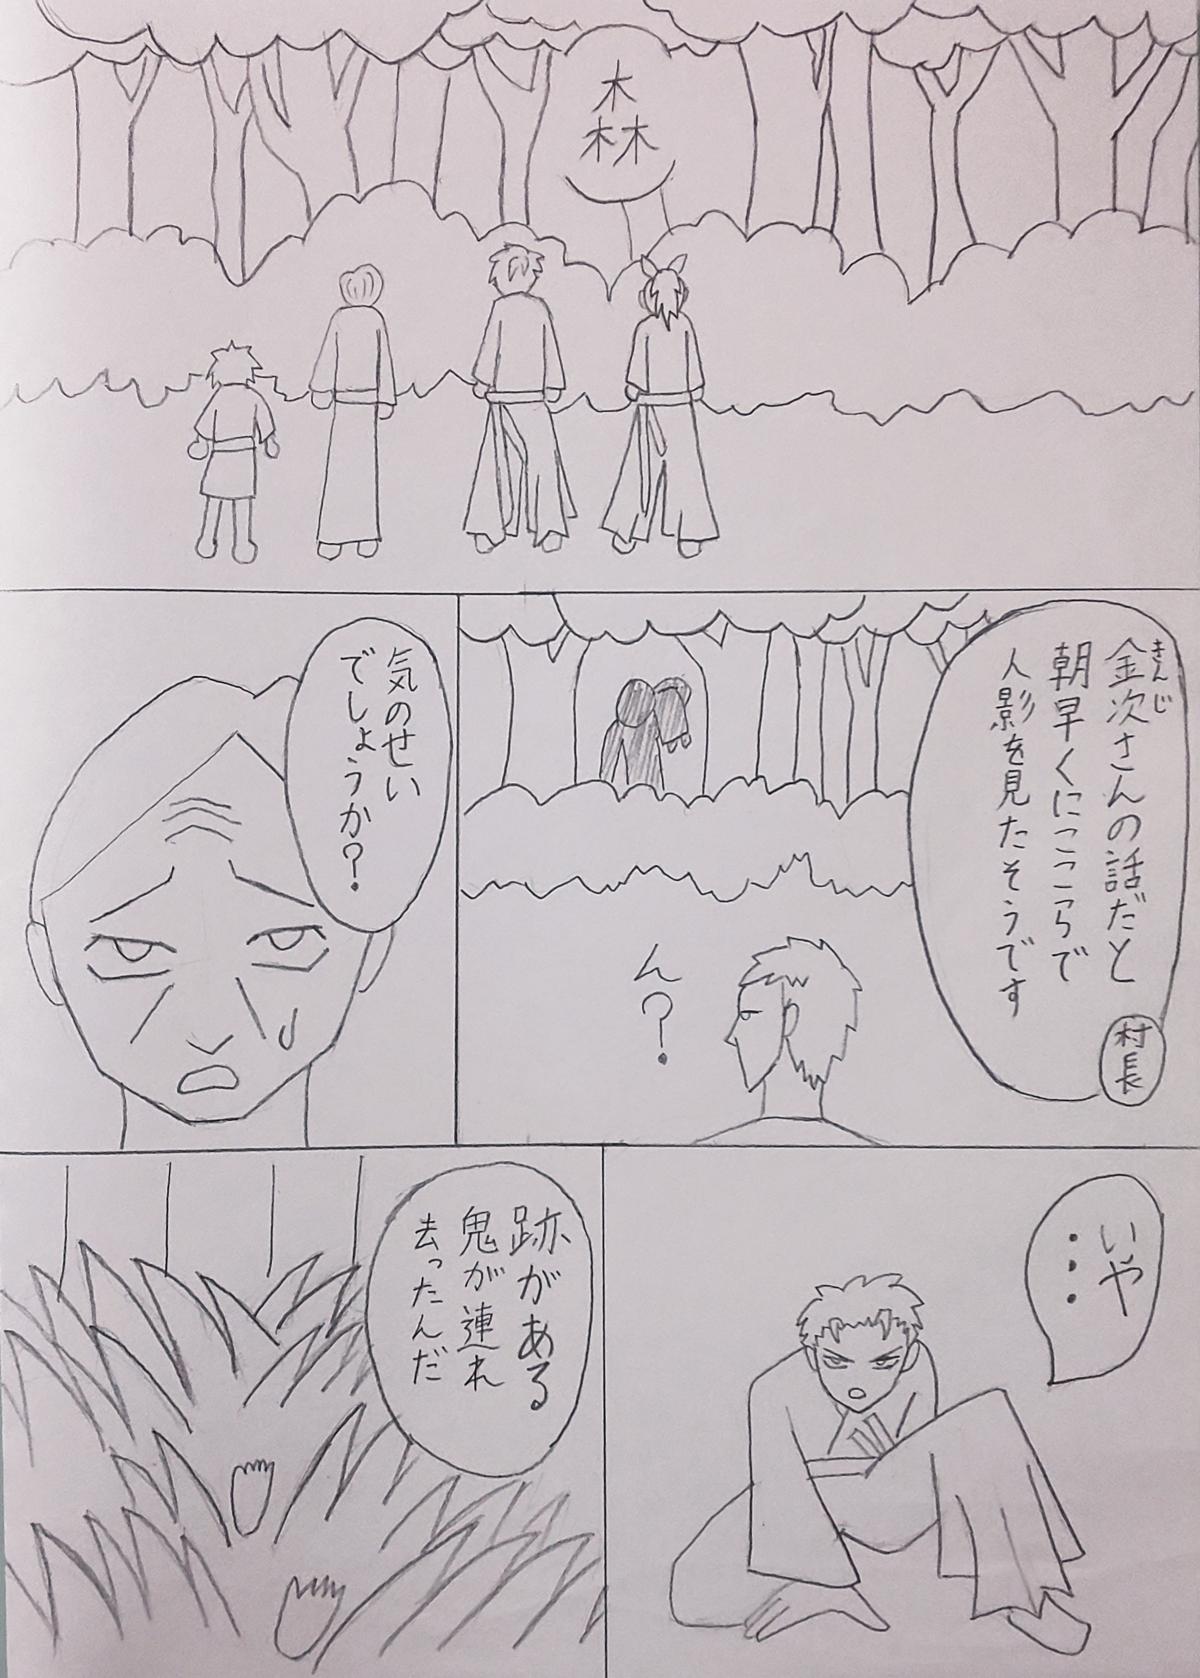 森
金次さんの話だと
きんじ
朝早くにここらで
人影を見たそうです
村長
ん?
気のせい
でしょうか?
いや
・・・
跡がある
鬼が連れ
去ったんだ